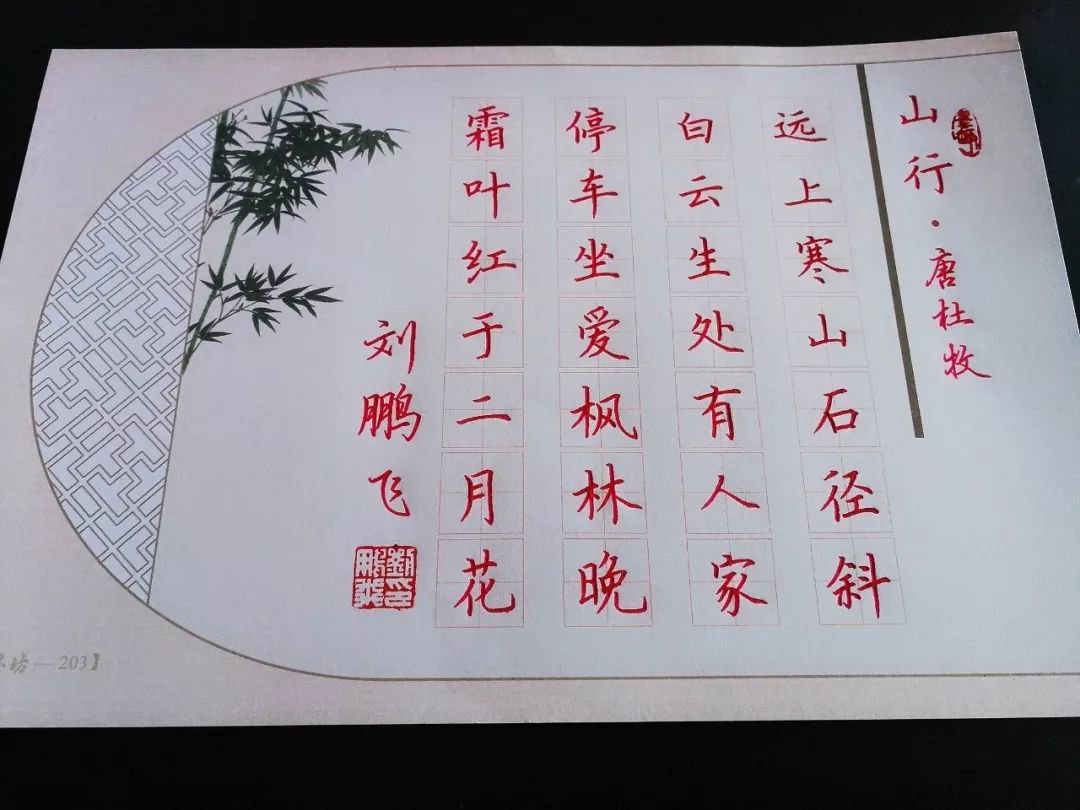 山行·唐杜牧
远上寒山石径斜
白云生处有人家
停车坐爱枫林晚
霜叶红于二月花
刘鹏飞
坊—203】